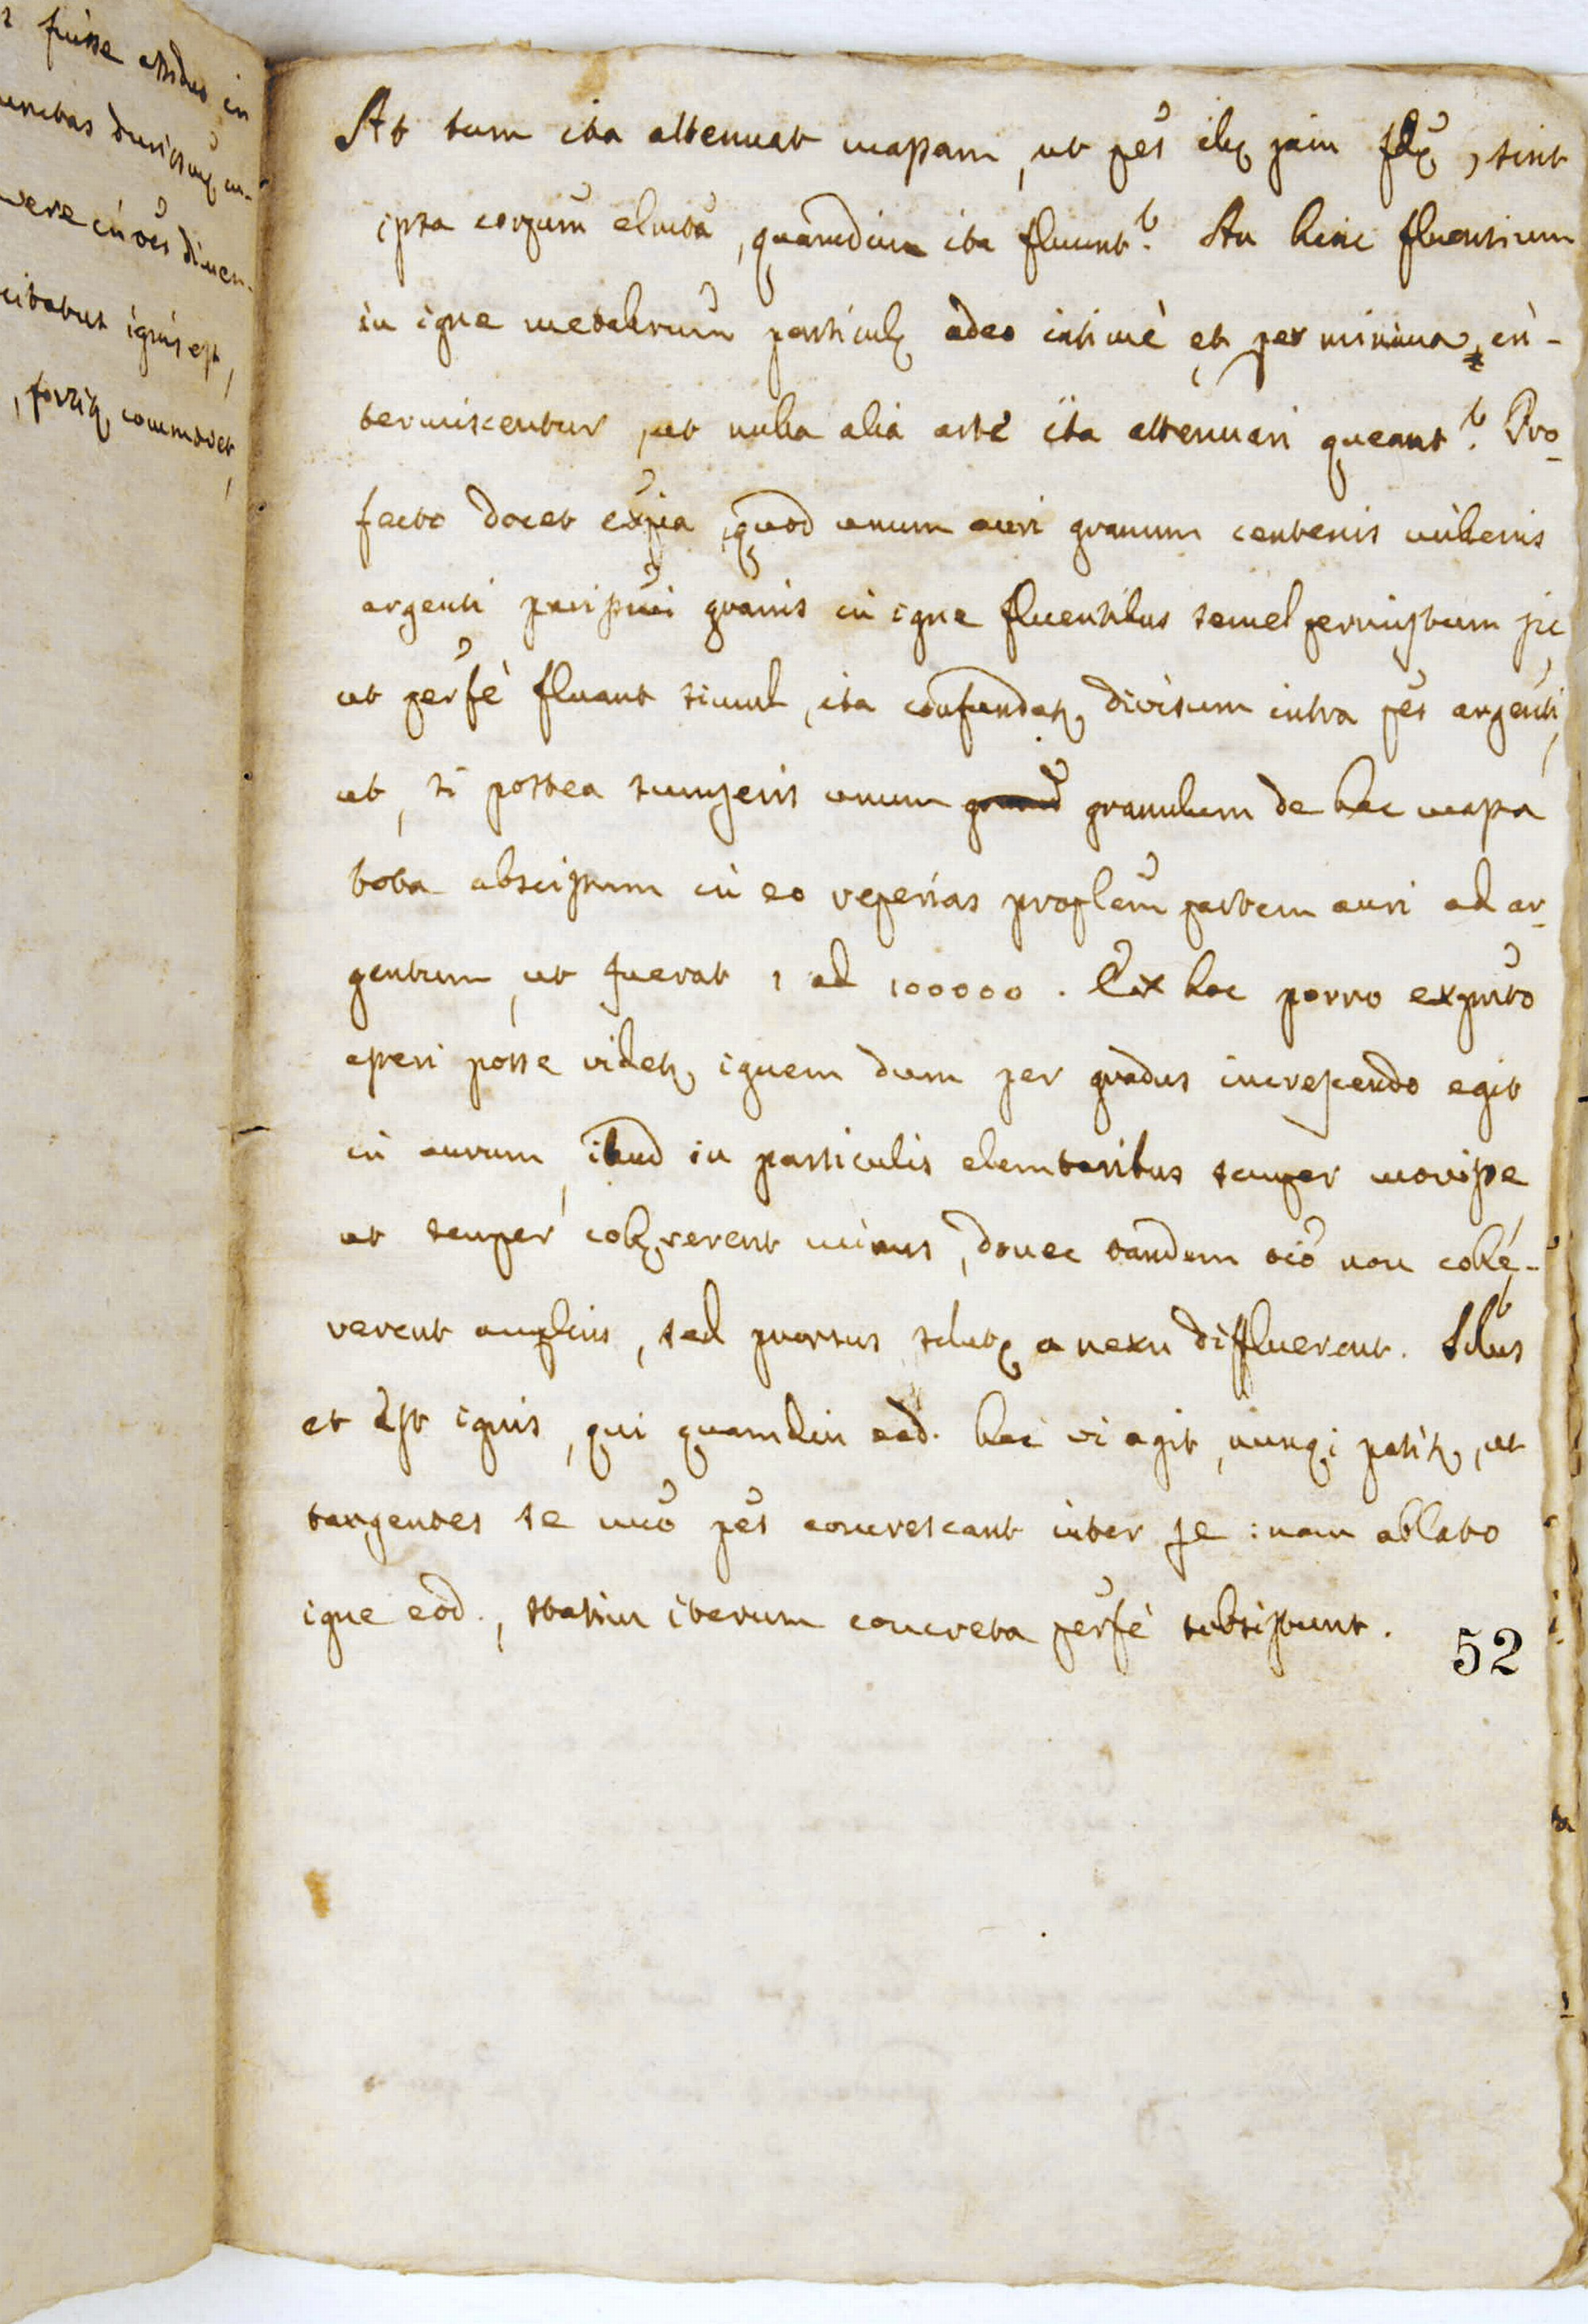 fuisse assiduo in
durissimæ
vere in oēs dimen-
citatus ignis est,
, fortiq commovet,
At tum ita attenuat massam, ut p̄es illæ jam sola, sint
ipsa corporum elmta, quamdiu ita fluunt? An hinc fluentium
in igne metallorum particulæ adeo intimè et per minima in-
termiscentur, ut nulla alia arte ita attenuari queant? Pro
fecto docet exp̄ia, quod unum auri granum centenis millenis
argenti purissimi granis in igne fluentibus semel permistum sic
ut perfē fluant simul, ita confundatq, divisum intra p̄es argenti,
ut, si postea sumseris unum granulum de hac massa
tota abscissum in eo reperias proplem partem auri ad ar
gentum, ut fuerat 1 ad 100000. Ex hoc porro exp̄mto
asseri posse videtq, ignem dum per gradus increscendo egit
in aurum, illud in particulis elemtaribus semper movisse,
ut semper cohærerent minus, donec tandem oīō non cohæ-
rerent amplius, sed prorsus solutæ a nexu diffluerent. Solus
et est ignis, qui quamdiu ead. hac vi agit, nunq; patitq, ut
tangentes se mūo p̄es concrescant inter se: nam ablato
igne eod., statim iterum concreta perfē subsistunt.
52